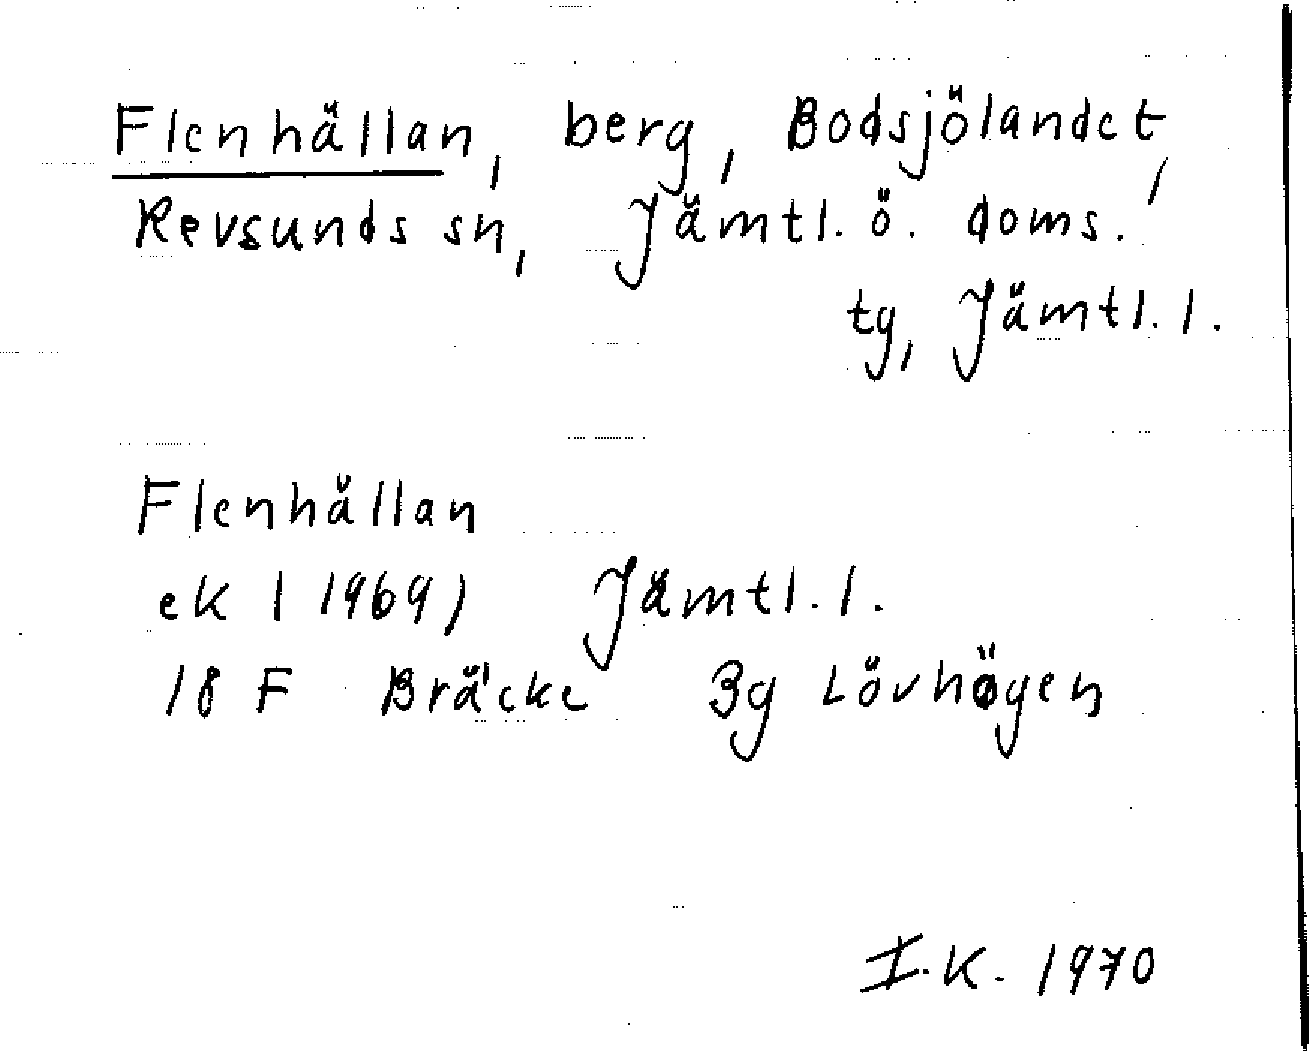 Flenhällan, berg, Bodsjölandet,
Revsunds sn, Jämtl. ö. doms.
tg, Jämtl. l.
Flenhällan
ek (1969) Jämtl. l.
18 F Bräcke 3g Lövhögen
I.K. 1970